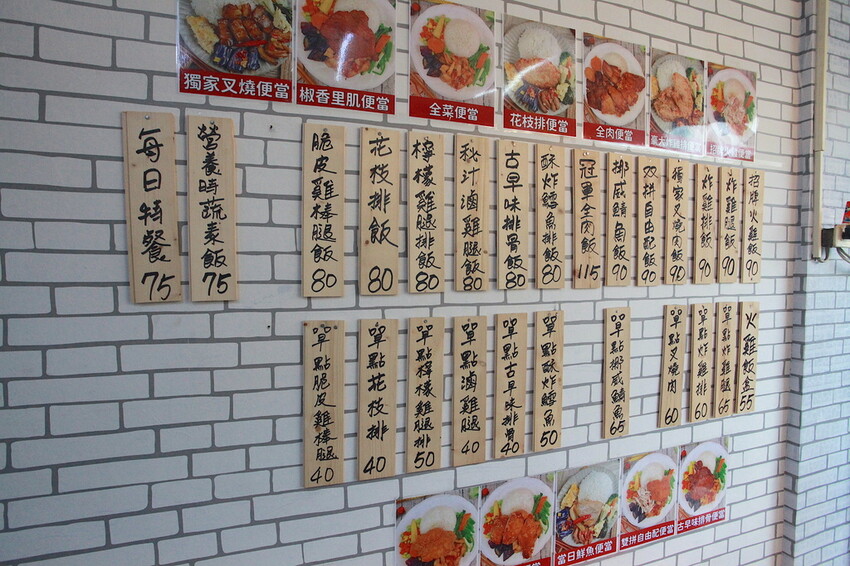 獨家叉燒便當
椒香里肌便當
全菜便當
花枝排便當
全肉便當
每日特餐 75
營養時蔬素飯 75
脆皮雞棒腿飯 80
花枝排飯 80
檸檬雞腿排飯 80
秘汁滷雞腿飯 80
古早味排骨飯 80
酥炸鱈魚排飯 80
冠軍全肉飯 115
挪威鯖魚飯 90
双拼自由配飯 90
獨家叉燒肉飯 90
炸雞排飯 90
炸雞腿飯 90
招牌火雞飯 90
單點脆皮雞棒腿 40
單點花枝排 40
單點檸檬雞腿排 50
單點滷雞腿 40
單點古早味排骨 40
單點酥炸鱈魚 50
單點挪威鯖魚 65
單點叉燒肉 60
單點炸雞排 60
單點炸雞腿 65
火雞飯盒 55
當日鮮魚便當
雙拼自由配便當
古早味排骨便當